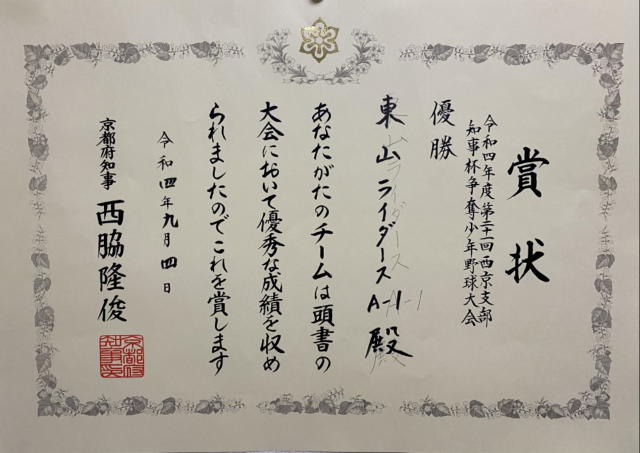 賞状
令和四年度第二十一回西京支部
知事杯争奪少年野球大会
優勝
東山ライダース A-1 殿
あなたがたのチームは頭書の
大会において優秀な成績を収め
られましたのでこれを賞します
令和四年九月四日
京都府知事 西脇隆俊
京都府知事之印